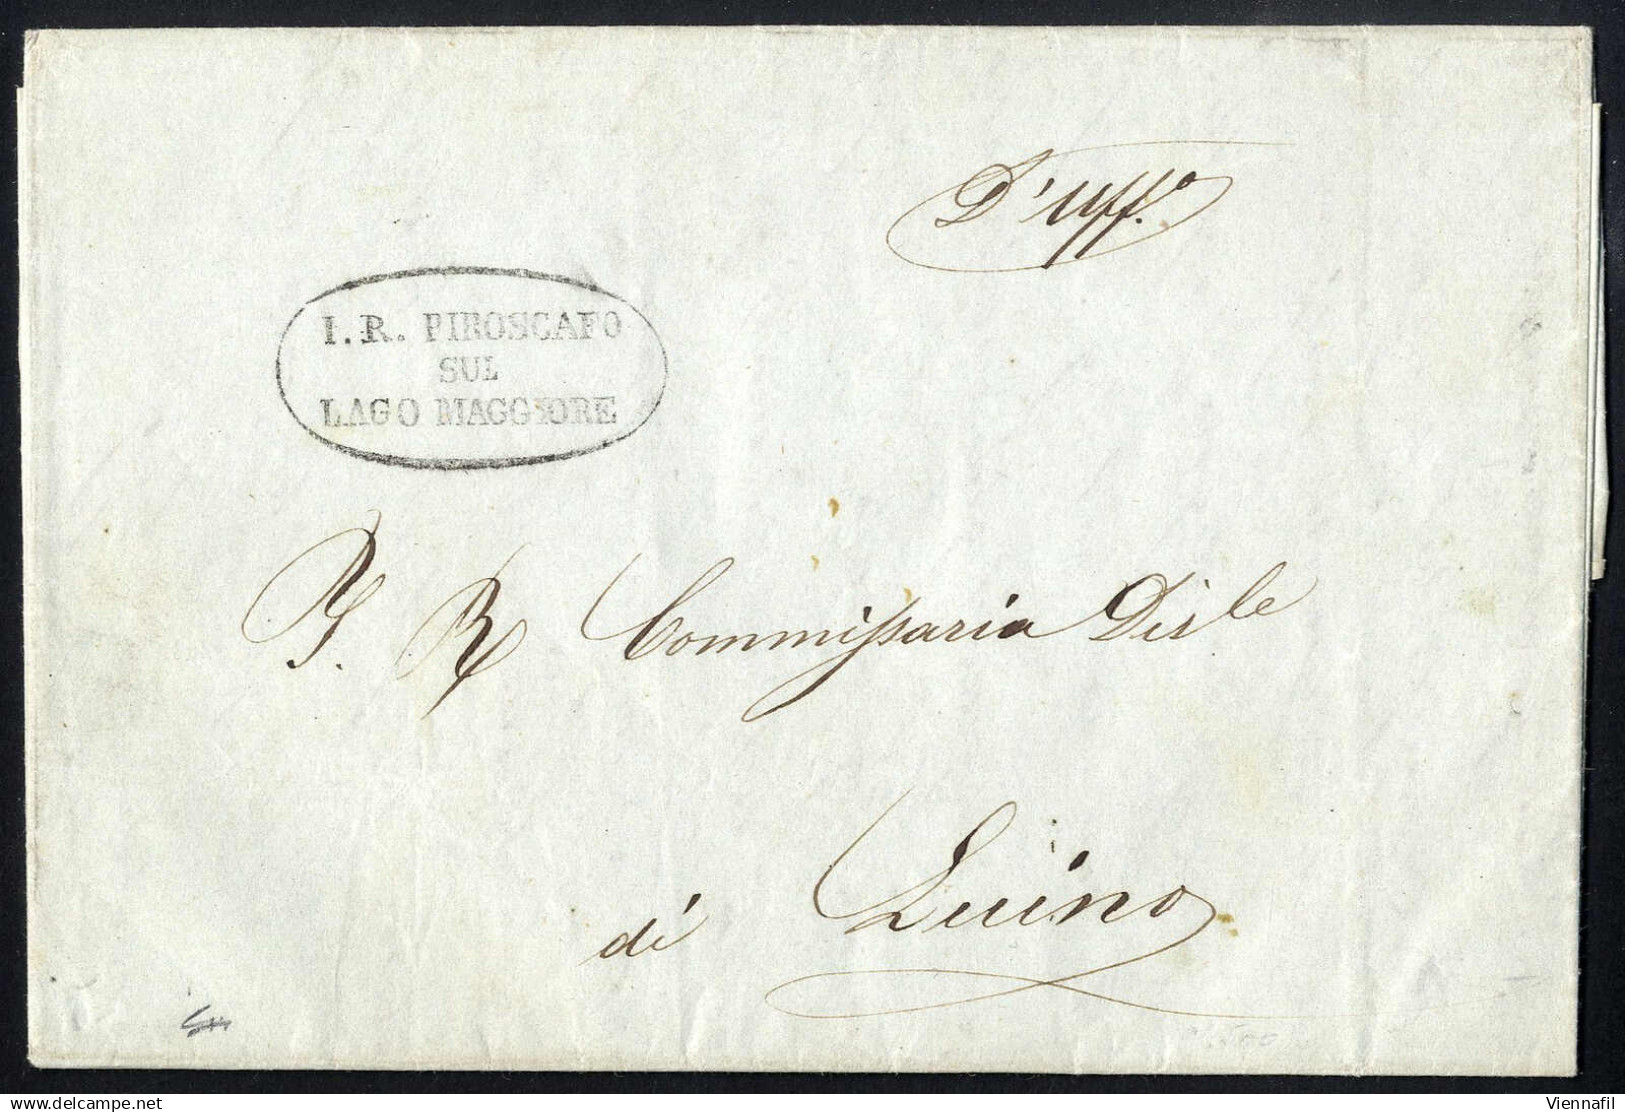 D'Uff.º
I. R. PIROSCAFO
SUL
LAGO MAGGIORE
I. R. Commissaria Disle
di Luino
delcampe.net
Viennafil